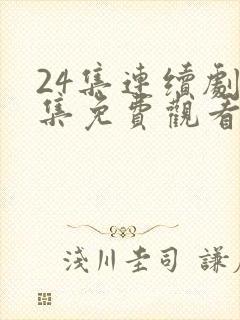 24集連續劇
集免費觀看
淺川圭司 謙